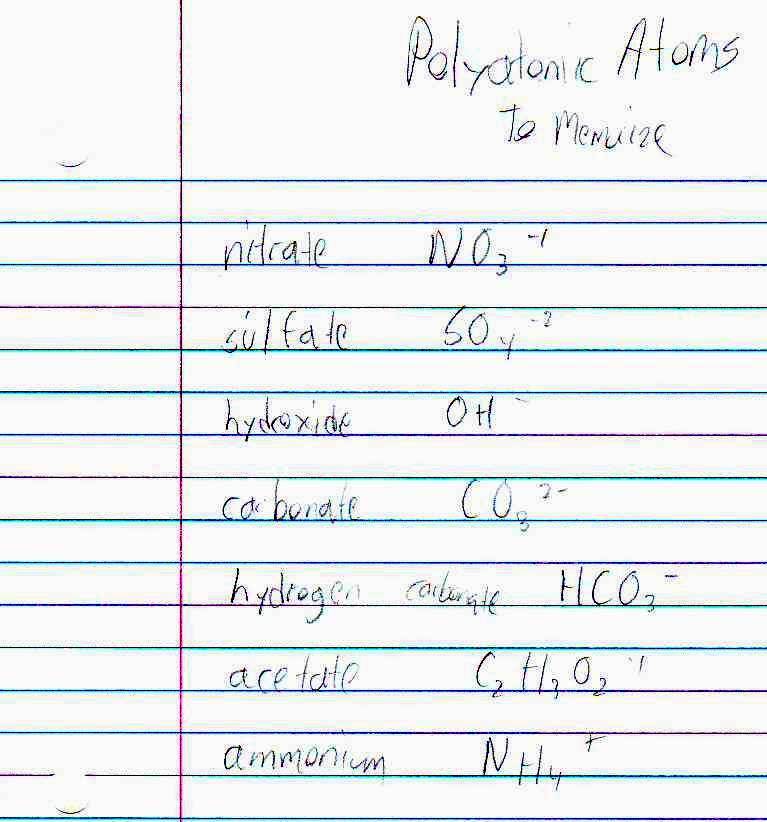 Polyatomic Atoms
To Memorize
nitrate NO₃⁻¹
sulfate SO₄⁻²
hydroxide OH⁻
carbonate CO₃²⁻
hydrogen carbonate HCO₃⁻
acetate C₂H₃O₂⁻¹
ammonium NH₄⁺